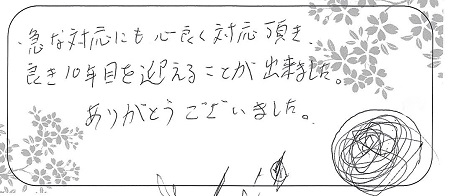 急な対応にも心良く対応頂き、
良き10年目を迎えることが出来ました。
ありがとうございました。